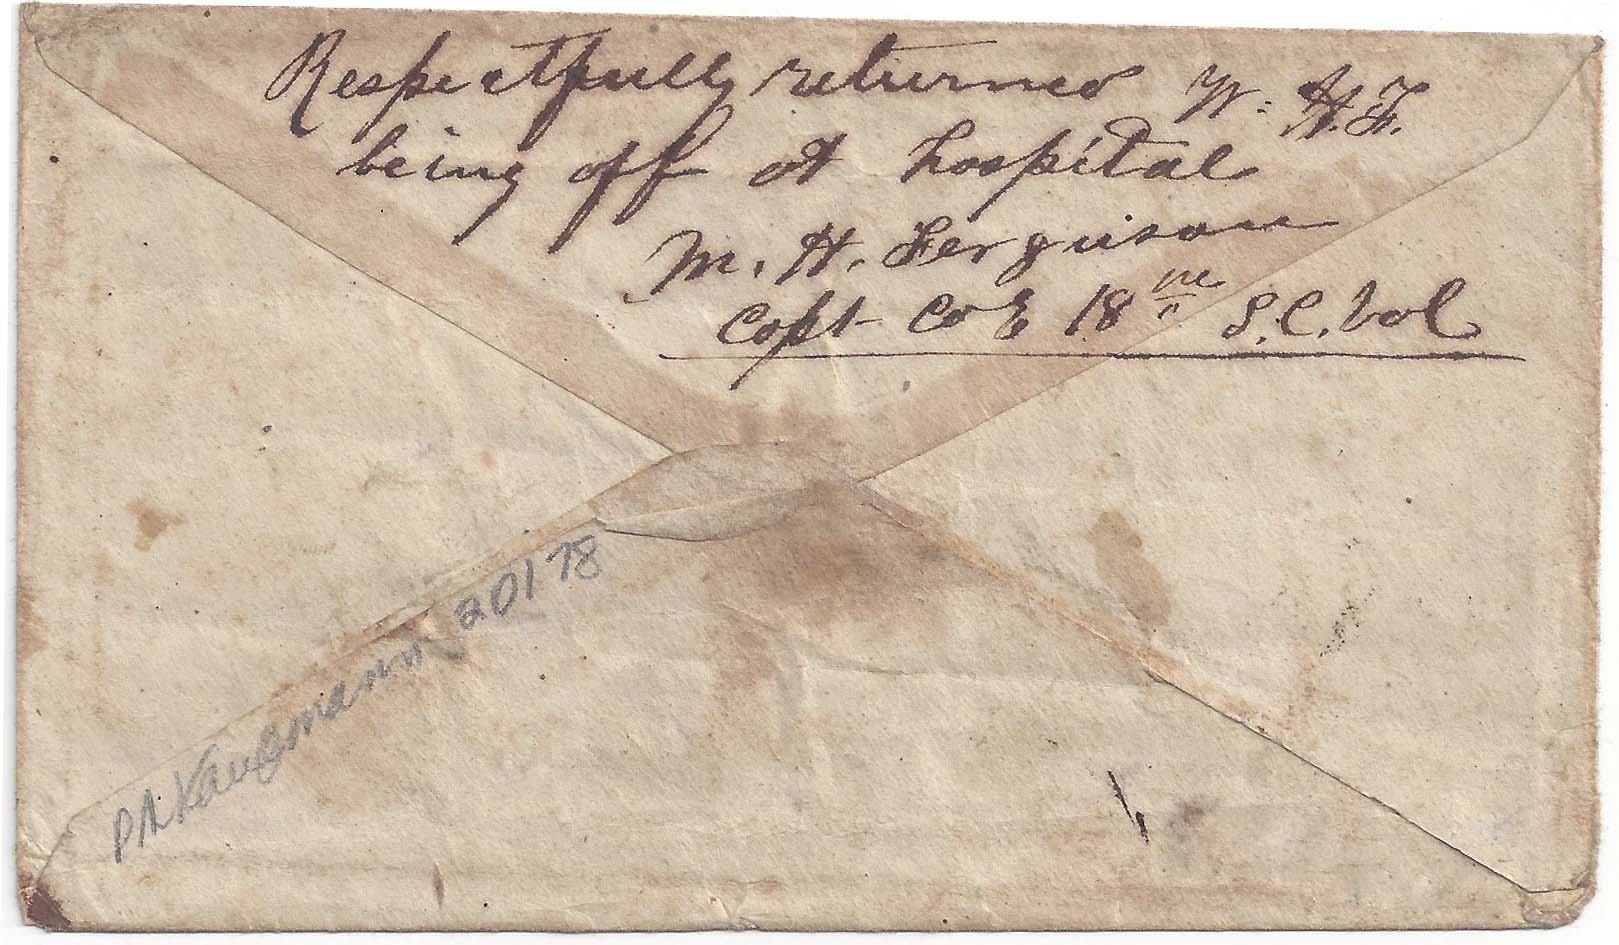 Respectfully returned W. H.F.
being off at hospital
M. H. Ferguson
Capt Co E 18th S.C. Vol
PA Kaufmann 20178